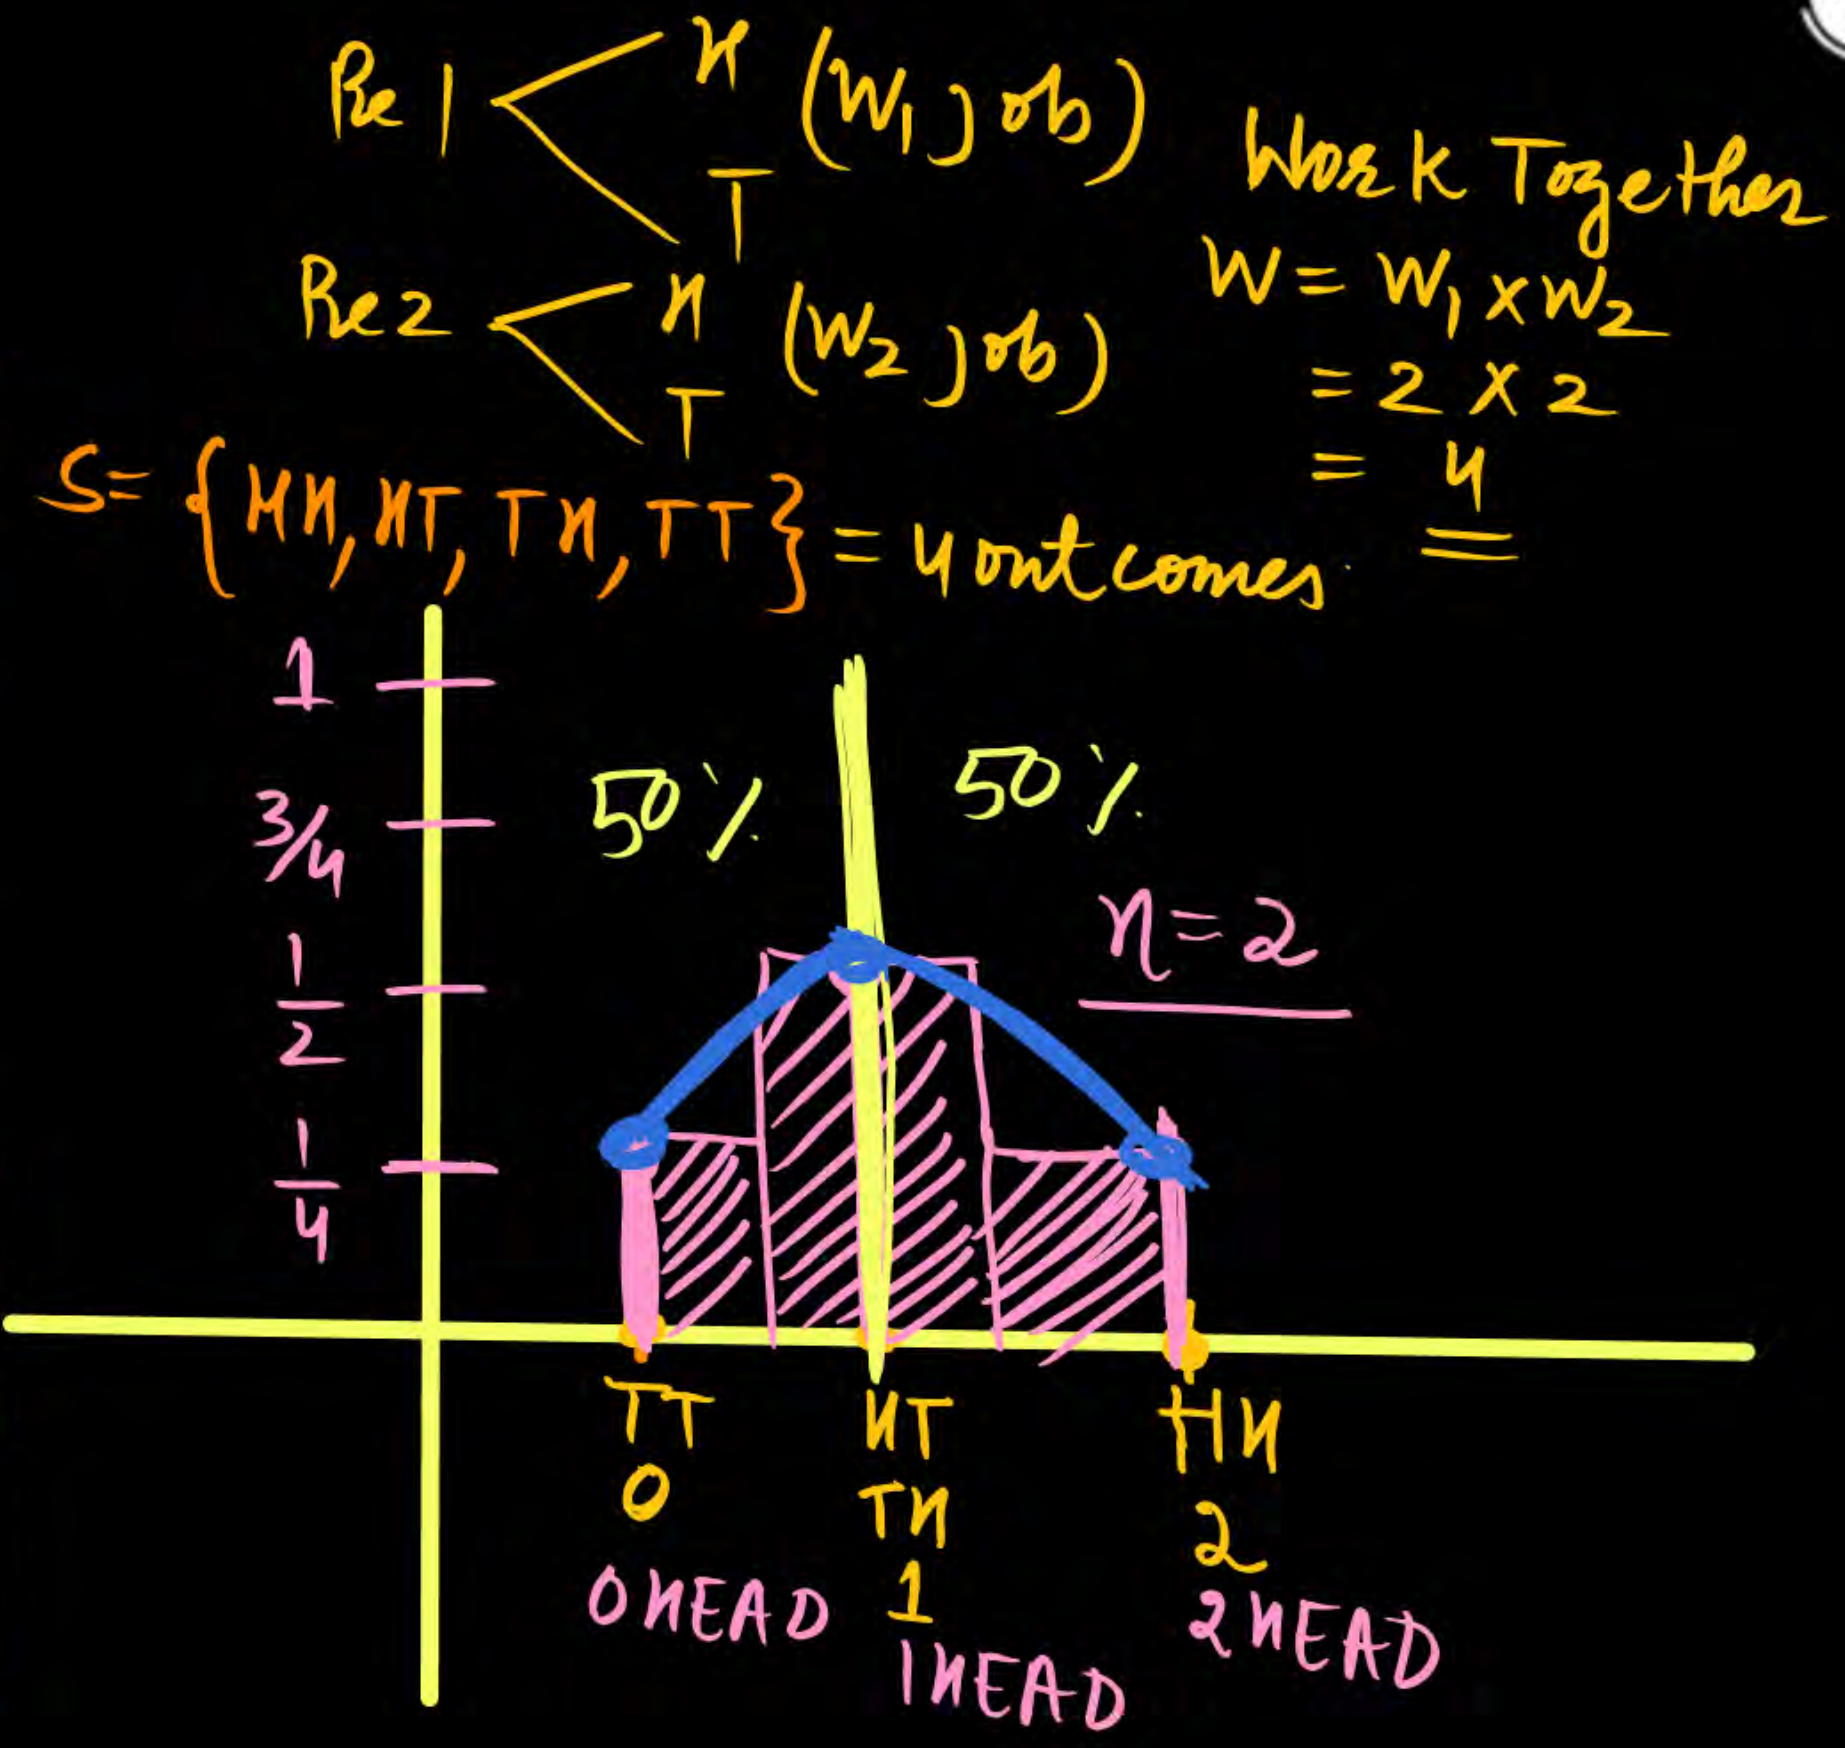 Re 1 H (W1 job)
T
Re 2 H (W2 job)
T
Work Together
W = W1 x W2
= 2 x 2
= 4
S = {HH, HT, TH, TT} = 4 outcomes.
1
3/4
1/2
1/4
50% 50%
n = 2
TT HT HH
0 TH 2
0HEAD 1 2HEAD
1HEAD